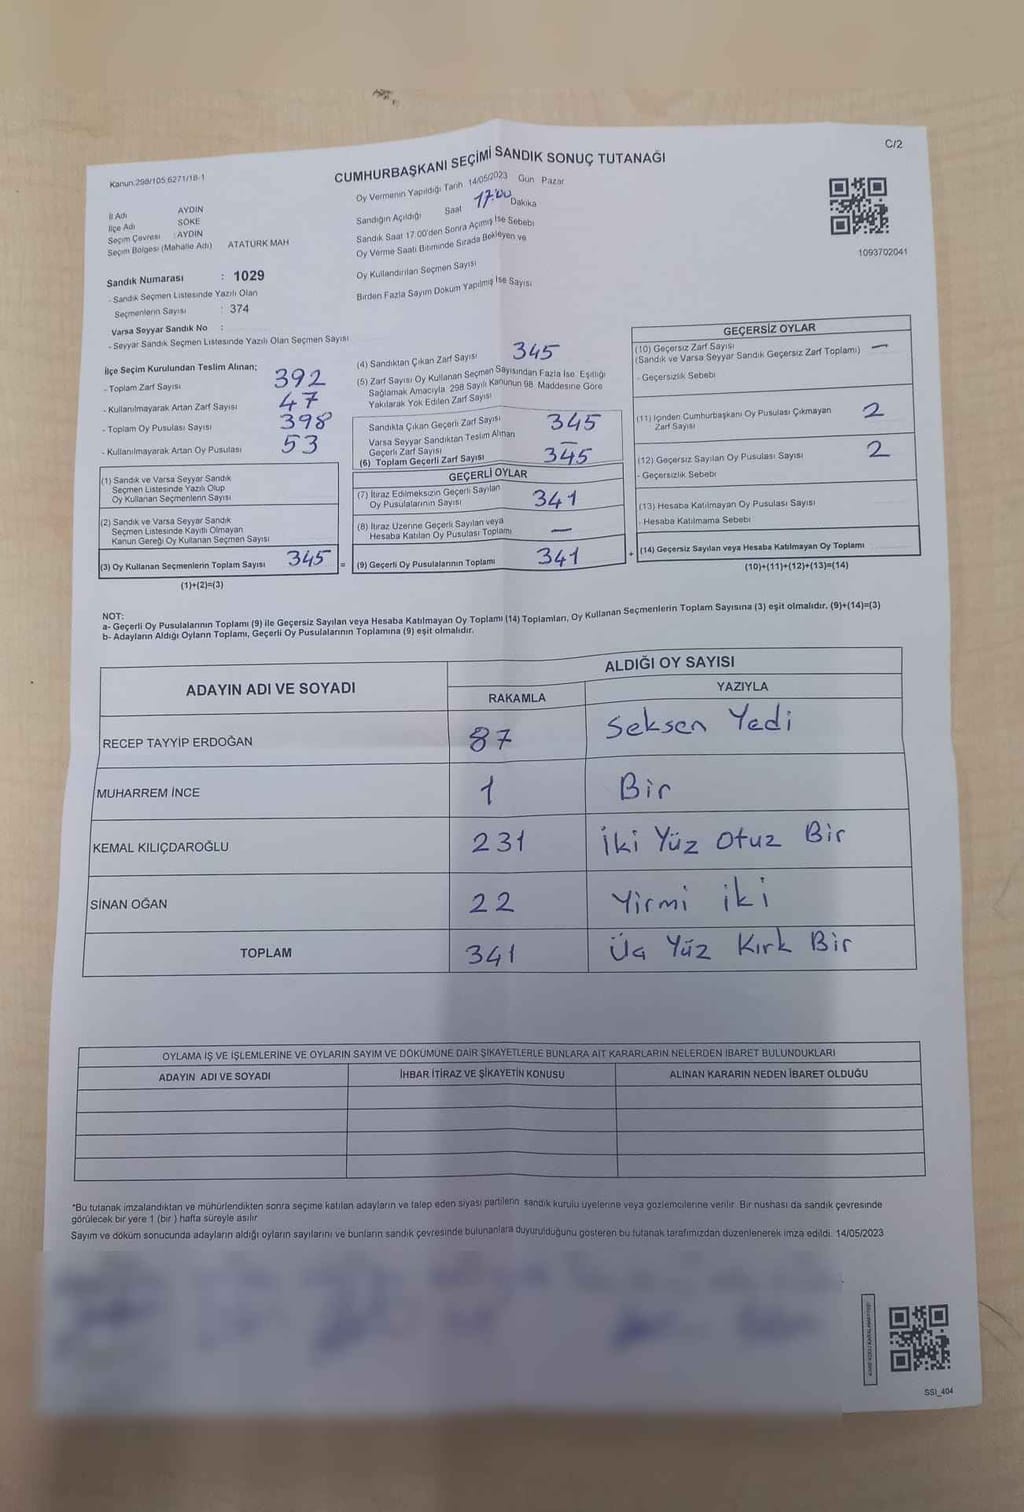 C/2
Kanun.298/105.6271/18-1
CUMHURBAŞKANI SEÇİMİ SANDIK SONUÇ TUTANAĞI
Oy Vermenin Yapıldığı Tarih 14/05/2023 Gün Pazar
Sandığın Açıldığı Saat 17:00 Dakika
Sandık Saat 17.00'den Sonra Açımış İse Sebebi
Oy Verme Saati Bitiminde Sırada Bekleyen ve
Oy Kullandırılan Seçmen Sayısı
Birden Fazla Sayım Döküm Yapılmış İse Sayısı
İl Adı AYDIN
İlçe Adı SÖKE
Seçim Çevresi :AYDIN
Seçim Bölgesi (Mahalle Adı) ATATÜRK MAH
1093702041
Sandık Numarası : 1029
- Sandık Seçmen Listesinde Yazılı Olan
Seçmenlerin Sayısı : 374
Varsa Seyyar Sandık No :
- Seyyar Sandık Seçmen Listesinde Yazılı Olan Seçmen Sayısı
İlçe Seçim Kurulundan Teslim Alınan;
- Toplam Zarf Sayısı 392
- Kullanılmayarak Artan Zarf Sayısı 47
- Toplam Oy Pusulası Sayısı 398
- Kullanılmayarak Artan Oy Pusulası 53
(1) Sandık ve Varsa Seyyar Sandık
Seçmen Listesinde Yazılı Olup
Oy Kullanan Seçmenlerin Sayısı
(2) Sandık ve Varsa Seyyar Sandık
Seçmen Listesinde Kayıtlı Olmayan
Kanun Gereği Oy Kullanan Seçmen Sayısı
(3) Oy Kullanan Seçmenlerin Toplam Sayısı 345 =
(1)+(2)=(3)
(4) Sandıktan Çıkan Zarf Sayısı 345
(5) Zarf Sayısı Oy Kullanan Seçmen Sayısından Fazla İse, Eşitliği
Sağlamak Amacıyla, 298 Sayılı Kanunun 98. Maddesine Göre
Yakılarak Yok Edilen Zarf Sayısı
Sandıkta Çıkan Geçerli Zarf Sayısı 345
Varsa Seyyar Sandıktan Teslim Alınan
Geçerli Zarf Sayısı —
(6) Toplam Geçerli Zarf Sayısı 345
GEÇERLİ OYLAR
(7) İtiraz Edilmeksizin Geçerli Sayılan
Oy Pusulalarının Sayısı 341
(8) İtiraz Üzerine Geçerli Sayılan veya
Hesaba Katılan Oy Pusulası Toplamı —
(9) Geçerli Oy Pusulalarının Toplamı 341 +
GEÇERSİZ OYLAR
(10) Geçersiz Zarf Sayısı —
(Sandık ve Varsa Seyyar Sandık Geçersiz Zarf Toplamı)
- Geçersizlik Sebebi
(11) İçinden Cumhurbaşkanı Oy Pusulası Çıkmayan
Zarf Sayısı 2
(12) Geçersiz Sayılan Oy Pusulası Sayısı 2
- Geçersizlik Sebebi
(13) Hesaba Katılmayan Oy Pusulası Sayısı
- Hesaba Katılmama Sebebi
(14) Geçersiz Sayılan veya Hesaba Katılmayan Oy Toplamı
(10)+(11)+(12)+(13)=(14)
NOT:
a- Geçerli Oy Pusulalarının Toplamı (9) ile Geçersiz Sayılan veya Hesaba Katılmayan Oy Toplamı (14) Toplamları, Oy Kullanan Seçmenlerin Toplam Sayısına (3) eşit olmalıdır. (9)+(14)=(3)
b- Adayların Aldığı Oyların Toplamı, Geçerli Oy Pusulalarının Toplamına (9) eşit olmalıdır.
ADAYIN ADI VE SOYADI ALDIĞI OY SAYISI
RAKAMLA YAZIYLA
RECEP TAYYİP ERDOĞAN 87 Seksen Yedi
MUHARREM İNCE 1 Bir
KEMAL KILIÇDAROĞLU 231 İki Yüz Otuz Bir
SİNAN OĞAN 22 Yirmi iki
TOPLAM 341 Üç Yüz Kırk Bir
OYLAMA İŞ VE İŞLEMLERİNE VE OYLARIN SAYIM VE DÖKÜMÜNE DAİR ŞİKAYETLERLE BUNLARA AİT KARARLARIN NELERDEN İBARET BULUNDUKLARI
ADAYIN ADI VE SOYADI İHBAR İTİRAZ VE ŞİKAYETİN KONUSU ALINAN KARARIN NEDEN İBARET OLDUĞU
*Bu tutanak imzalandıktan ve mühürlendikten sonra seçime katılan adayların ve talep eden siyasi partilerin sandık kurulu üyelerine veya gözlemcilerine verilir. Bir nüshası da sandık çevresinde
görülecek bir yere 1 (bir ) hafta süreyle asılır
Sayım ve döküm sonucunda adayların aldığı oyların sayılarını ve bunların sandık çevresinde bulunanlara duyurulduğunu gösteren bu tutanak tarafımızdan düzenlenerek imza edildi. 14/05/2023
SSİ_404